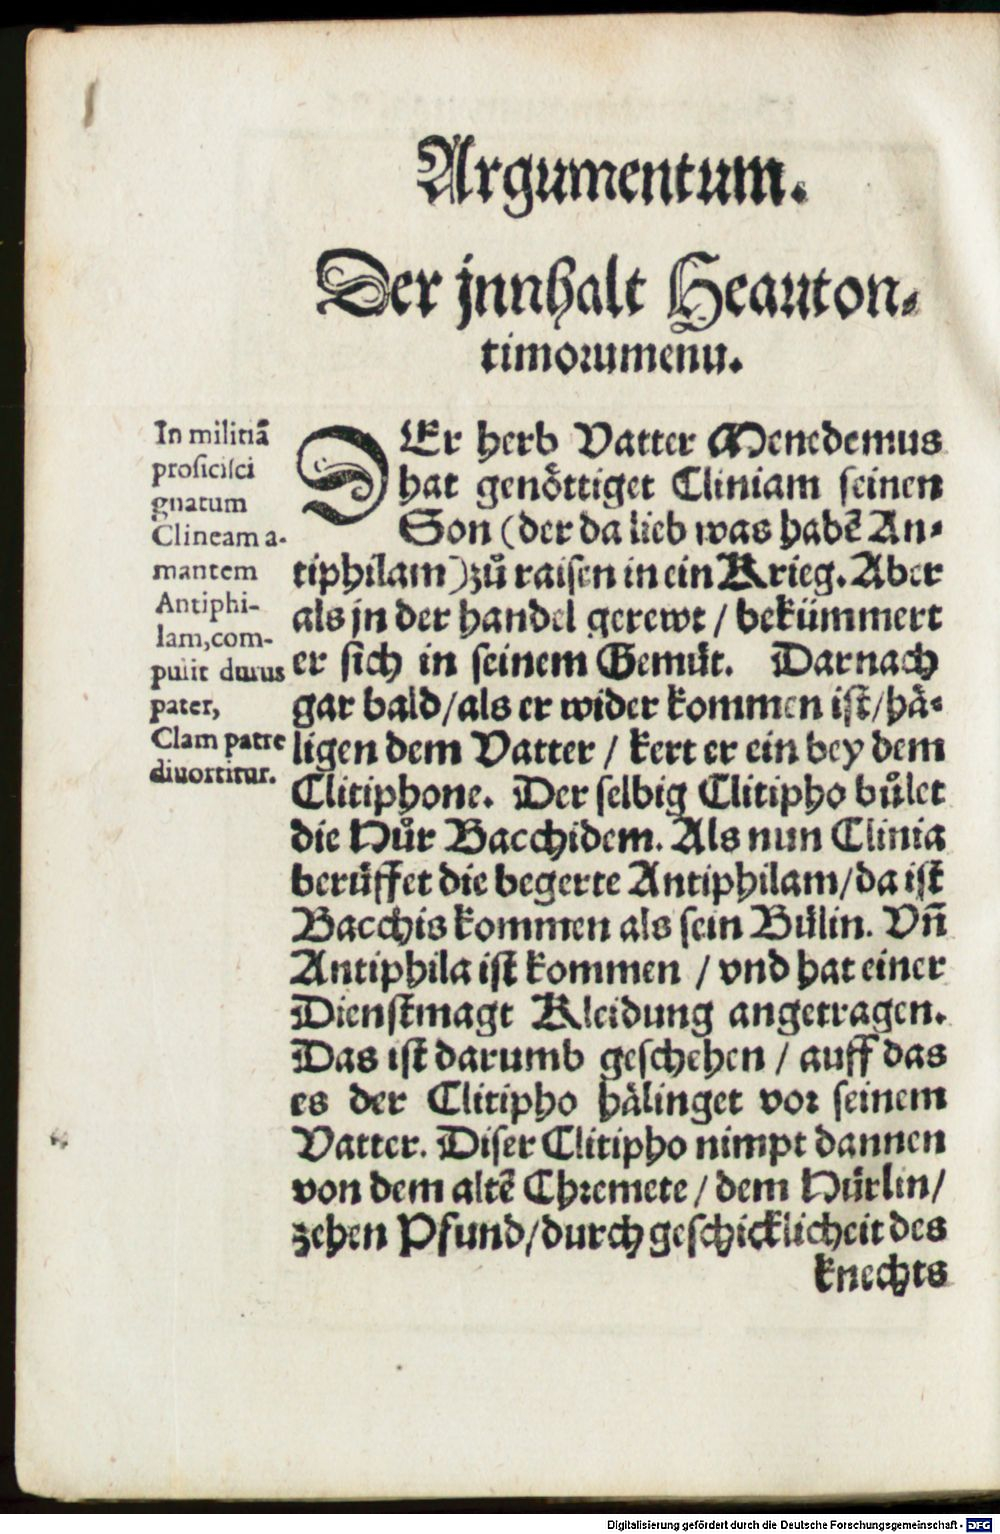 Argumentum.
Der jnnhalt Heauton⸗
timorumenu.
In militiā
proficiſci
gnatum
Clineam a-
mantem
Antiphi-
lam, com-
pulit durus
pater,
Clam patre
diuortitur.
DEr herb Vatter Menedemus
hat genöttiget Cliniam ſeinen
Son (der da lieb was habē An⸗
tiphilam) zů raiſen in ein Krieg. Aber
als jn der handel gerewt / bekümmert
er ſich in ſeinem Gemüt. Darnach
gar bald / als er wider kommen iſt / hä⸗
ligen dem Vatter / kert er ein bey dem
Clitiphone. Der ſelbig Clitipho bůlet
die Hůr Bacchidem. Als nun Clinia
berüffet die begerte Antiphilam / da iſt
Bacchis kommen als ſein Bülin. Vñ
Antiphila iſt kommen / vnd hat einer
Dienſtmagt Kleidung angetragen.
Das iſt darumb geſchehen / auff das
es der Clitipho hälinget vor ſeinem
Vatter. Diſer Clitipho nimpt dannen
von dem altē Chremete / dem Hürlin /
zehen Pfund / durch geſchicklicheit des
knechts
Digitalisierung gefördert durch die Deutsche Forschungsgemeinschaft - DFG